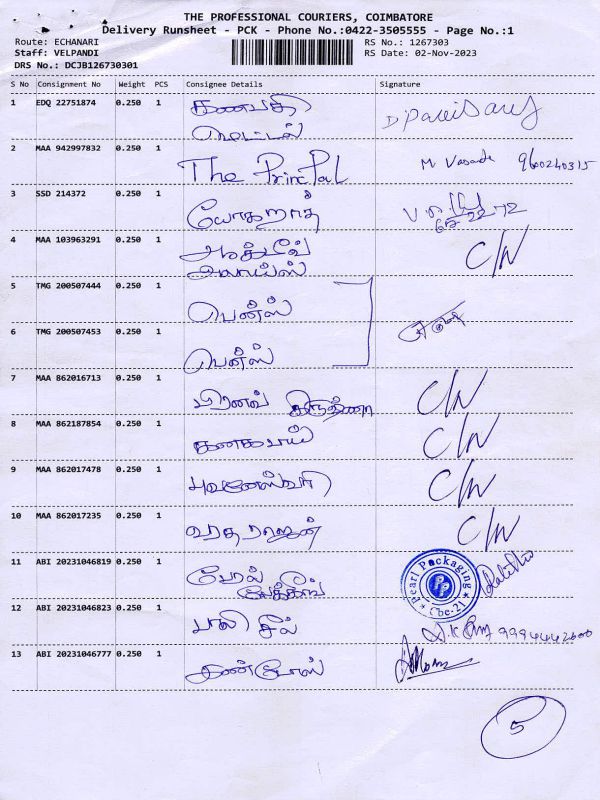 THE PROFESSIONAL COURIERS, COIMBATORE
Delivery Runsheet - PCK - Phone No.:0422-3505555 - Page No.:1
Route: ECHANARI RS No.: 1267303
Staff: VELPANDI RS Date: 02-Nov-2023
DRS No.: DCJB126730301
S No Consignment No Weight PCS Consignee Details Signature
1 EDQ 22751874 0.250 1 கணபதி
மெட்டல்
2 MAA 942997832 0.250 1 The PrincPal M 9600240315
3 SSD 214372 0.250 1 யோகராஜ்
4 MAA 103963291 0.250 1 C/N
5 TMG 200507444 0.250 1 பென்ஸ்
6 TMG 200507453 0.250 1 பென்ஸ்
7 MAA 862016713 0.250 1 பிரனவ் கிருஷ்ணா C/N
8 MAA 862187854 0.250 1 C/N
9 MAA 862017478 0.250 1 புவனேஸ்வரி C/N
10 MAA 862017235 0.250 1 வரதராஜன் C/N
11 ABI 20231046819 0.250 1 பேக்கிங் Pearl Packaging PP Cbe-21
12 ABI 20231046823 0.250 1 பாலி 9994442600
13 ABI 20231046777 0.250 1
5